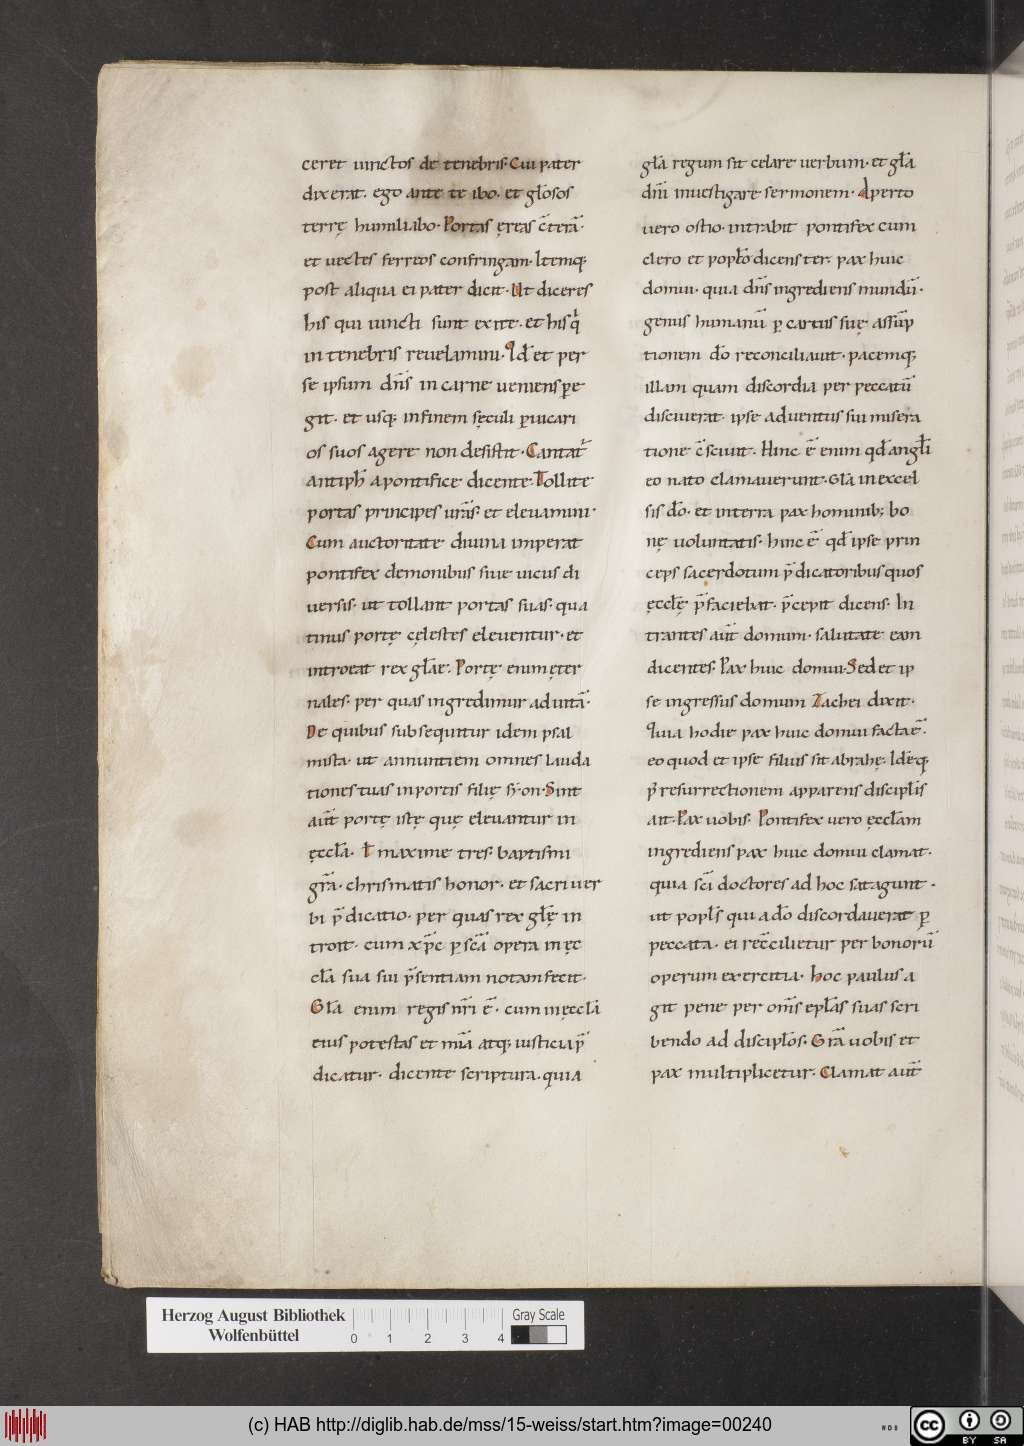 ceret uinctos de tenebris. Cui pater
dixerat. ego ante te ibo. et gl̄osos
terrę humiliabo. Portas ęreas c̄terā.
et uectes ferreos confringam. Itemq;
post aliqua ei pater dicit. Ut diceres
his qui uincti sunt exite. et his q̇
in tenebris reuelamini. Id ē et per
se ipsum dn̄s in carne ueniens pe
git. et usq; in finem sęculi p̱ uicari
os suos agere non desistit. Cantat̄
antiph̄ a pontifice dicente. Tollite
portas principes ur̄as. et eleuamini.
Cum auctoritate diuina imperat
pontifex demonibus siue uicus di
uersis. ut tollant portas suas. qua
tinus portę cęlestes eleuentur. et
introeat rex gl̄ae. Portę enim ęter
nales. per quas ingredimur ad uitā.
De quibus subsequitur idem psal
mista. ut annuntiem omnes lauda
tiones tuas in portis filię sẏon. Sint
aūt portę istę quę eleuantur in
ęccl̄a. t̄ maxime tres. baptismi
gr̄a. chrismatis honor. et sacri uer
bi p̄dicatio. per quas rex gl̄ę in
troit. cum xp̄c p̱ sc̄a opera in ęc
cl̄a sua sui p̄sentiam notam fecit.
Gl̄a enim regis nr̄i ē. cum in ęccl̄a
eius potestas et mīa atq; iusticia p̄
dicatur. dicente scriptura. quia
gl̄a regum sit celare uerbum. et gl̄a
dn̄i inuestigare sermonem. Aperto
uero ostio. intrabit pontifex cum
clero et popl̄o dicens ter. pax huic
domui. quia dn̄s ingrediens mundū.
genus humanū p̱ carnis suę assūp
tionem dō reconciliauit. pacemq;
illam quam discordia per peccatū
disciuerat. ipse aduentus sui misera
tione c̄sciuit. Hinc ē enim qd̄ angl̄i
eo nato clamauerunt. Gl̄a in excel
sis dō. et in terra pax hominib; bo
nę uoluntatis. hinc ē qd̄ ipse prin
ceps sacerdotum p̄dicatoribus quos
ęccl̄ę p̄faciebat. p̄cepit dicens. In
trantes aūt domum. salutate eam
dicentes. Pax huic domui. Sed et ip
se ingressus domum Zachei dixit.
Quia hodie pax huic domui facta ē.
eo quod et ipse filius sit abrahę. Ideq;
p̄ resurrectionem apparens discipl̄is
ait. Pax uobis. Pontifex uero ęccl̄am
ingrediens pax huic domui clamat.
quia sc̄i doctores ad hoc satagunt.
ut popl̄s qui a dō discordauerat p̱
peccata. ei rec̄cilietur per bonorū
operum exercitia. hoc paulus a
git pene per om̄s epl̄as suas scri
bendo ad discipl̄os. Gr̄a uobis et
pax multiplicetur. Clamat aūt
Herzog August Bibliothek
Wolfenbüttel
0 1 2 3 4
Gray Scale
(c) HAB http://diglib.hab.de/mss/15-weiss/start.htm?image=00240
WDB
cc BY SA